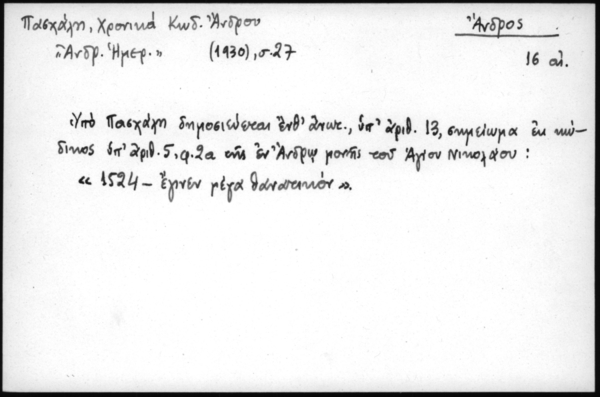 Πασχάλη, Χρονικά Κωδ. Ἄνδρου
"Ἀνδρ. Ἡμερ." (1930), σ. 27
Ἄνδρος
16 αἰ.
Ὑπὸ Πασχάλη δημοσιεύεται ἔνθ' ἀνωτ., ὑπ' ἀριθ. 13, σημείωμα ἐκ κώ-
δικος ὑπ' ἀριθ. 5, φ. 2α τῆς ἐν Ἄνδρῳ μονῆς τοῦ Ἁγίου Νικολάου :
« 1524 – ἔγινεν μέγα θανατικόν ».